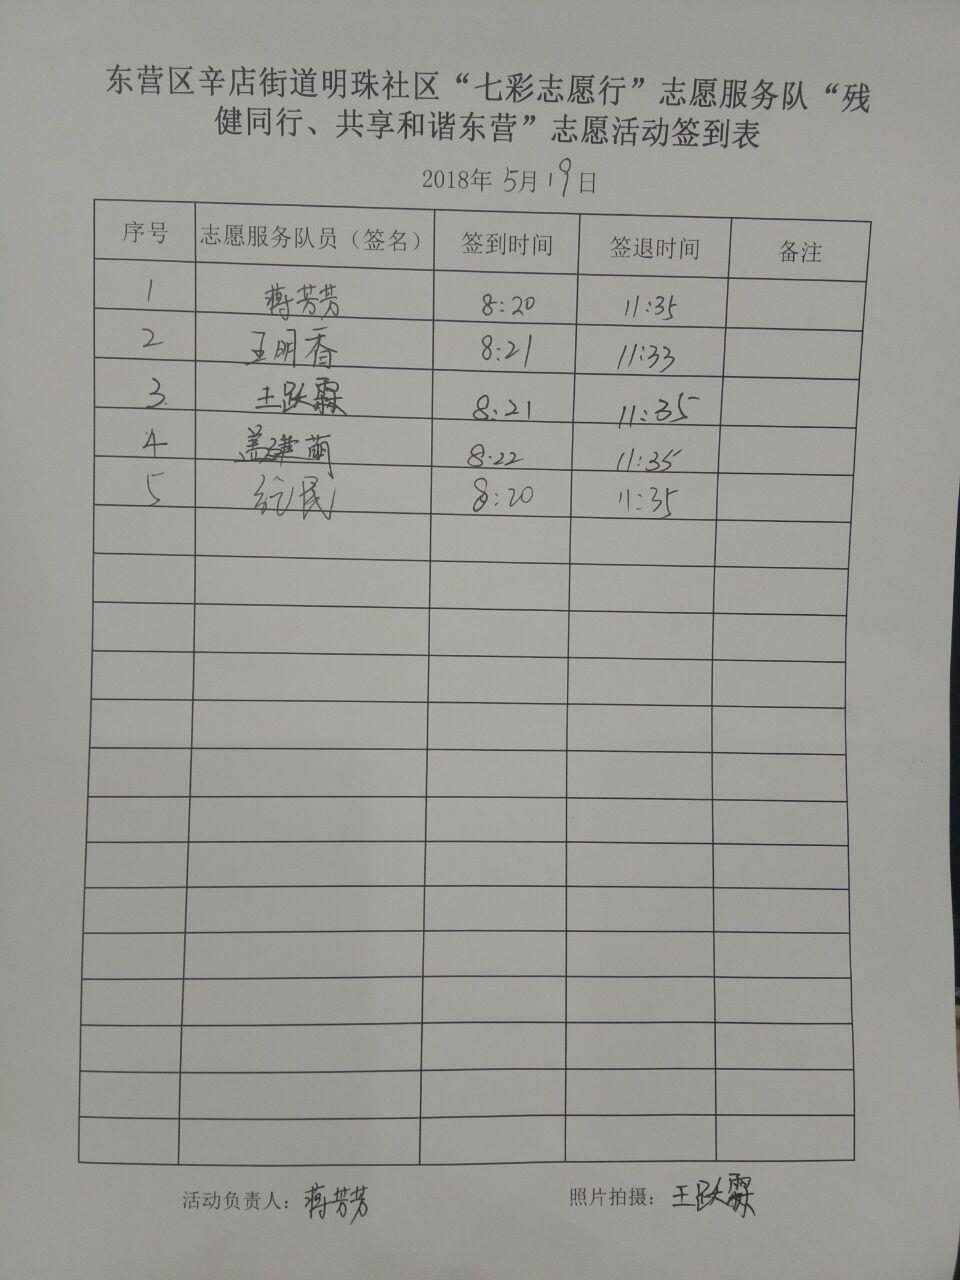 东营区辛店街道明珠社区“七彩志愿行”志愿服务队“残
健同行、共享和谐东营”志愿活动签到表
2018年 5月19日
序号 志愿服务队员（签名） 签到时间 签退时间 备注
1 蒋芳芳 8:20 11:35
2 王明香 8:21 11:33
3 王跃霖 8:21 11:35
4 盖建萌 8:22 11:35
5 8:20 11:35
活动负责人：蒋芳芳 照片拍摄：王跃霖